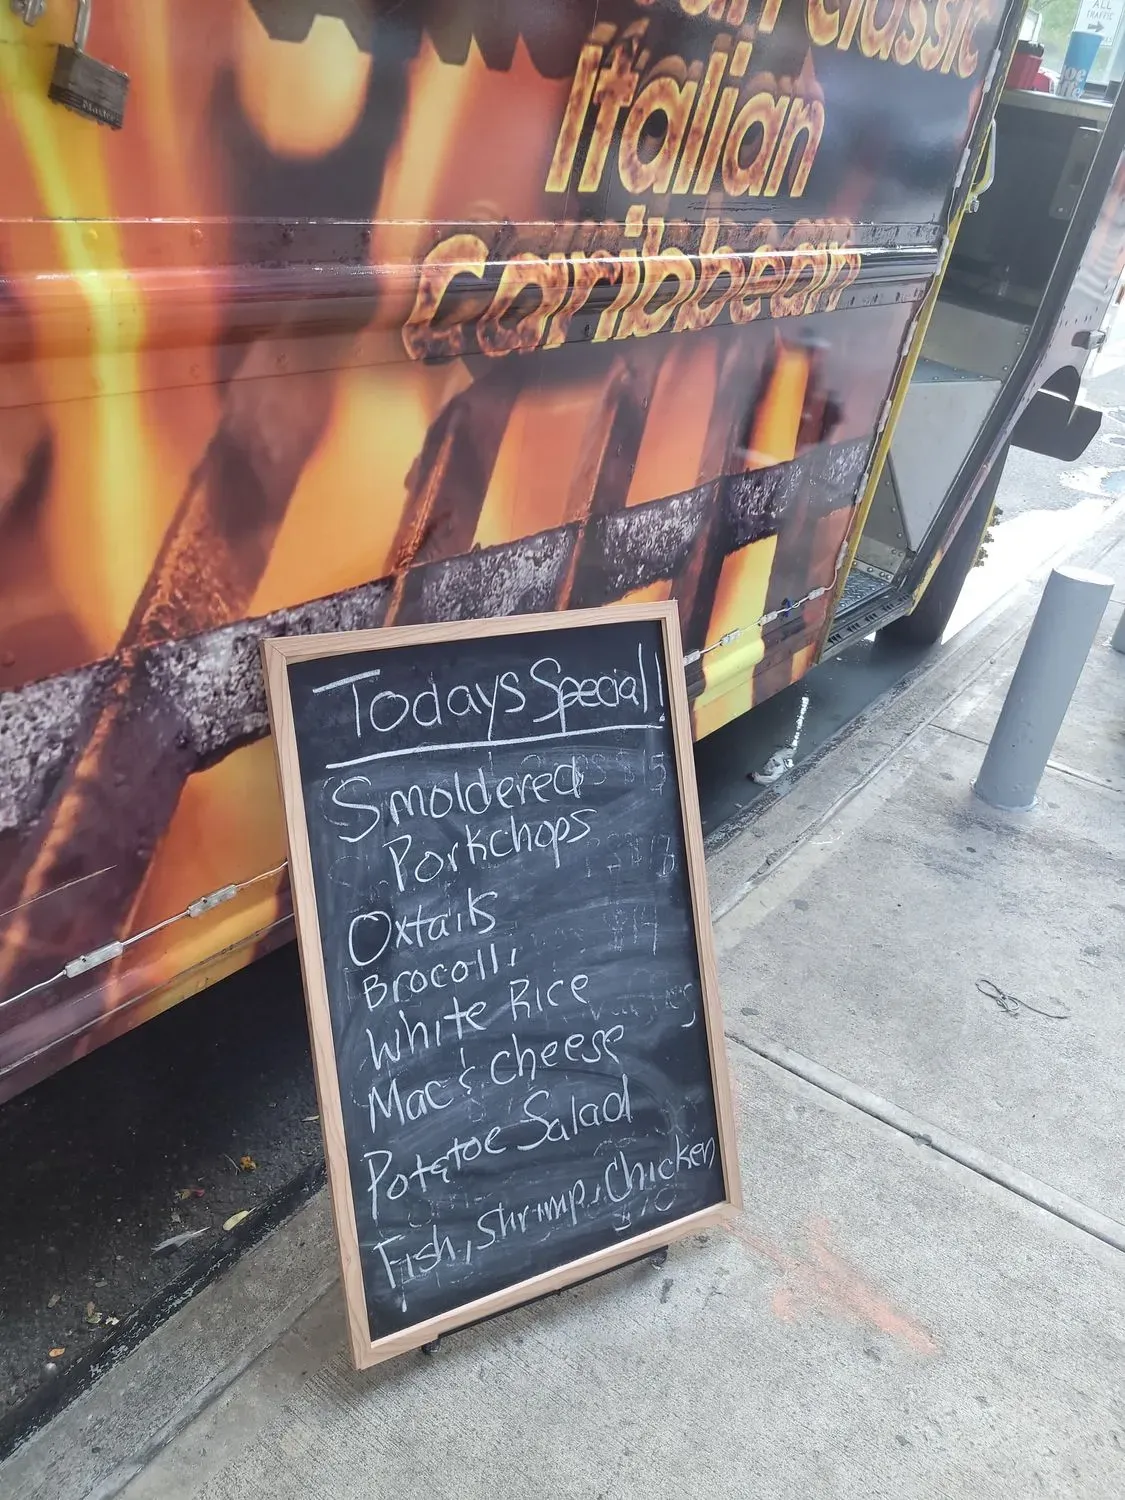 classic
Italian
caribbean
Master
ALL
TRAFFIC
Todays Special!
Smoldered
Porkchops
Oxtails
Brocolli
White Rice
Mac & cheese
Potatoe Salad
Fish, Shrimp, Chicken